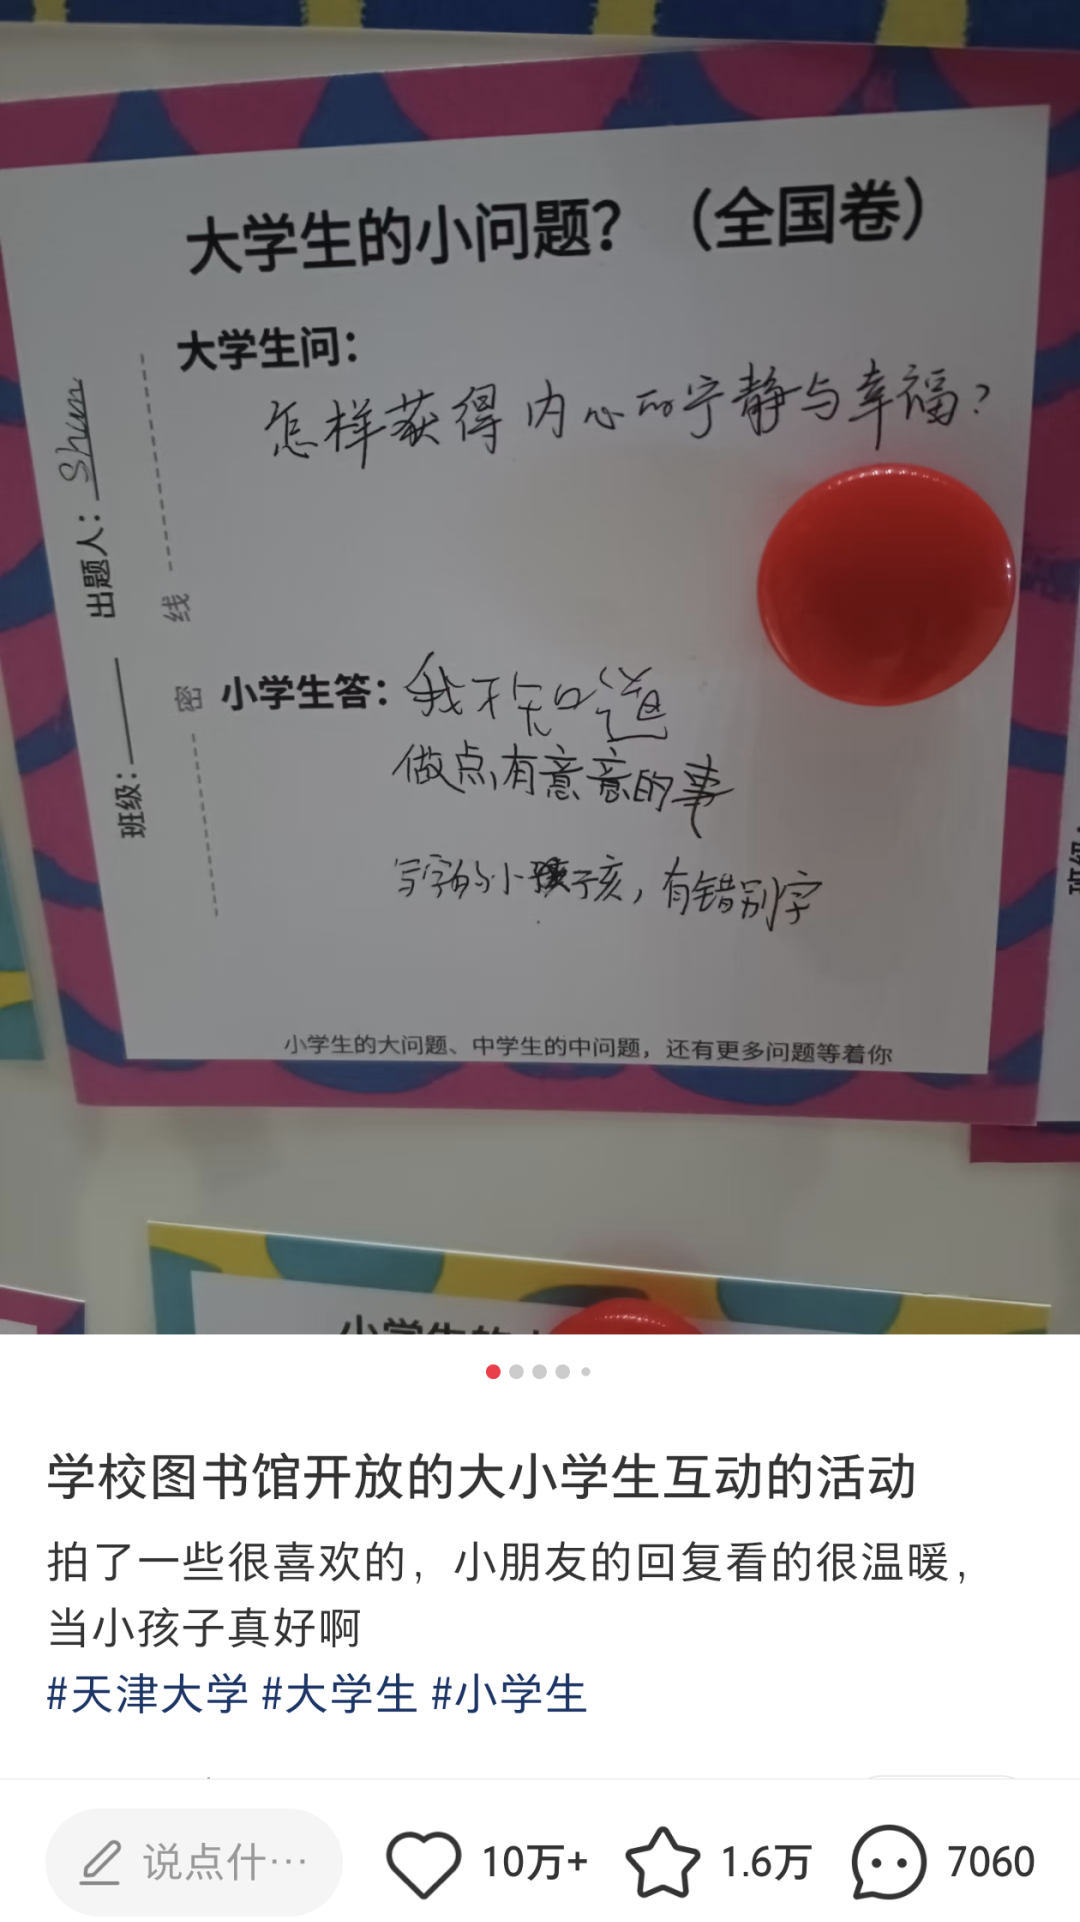 大学生的小问题？（全国卷）
大学生问：
怎样获得内心的宁静与幸福？
出题人：Shun
班级：
线
密
小学生答：我不知道
做点有意意的事
写字的小孩子亥，有错别字
小学生的大问题、中学生的中问题，还有更多问题等着你
学校图书馆开放的大小学生互动的活动
拍了一些很喜欢的，小朋友的回复看的很温暖，
当小孩子真好啊
#天津大学 #大学生 #小学生
说点什…
10万+
1.6万
7060